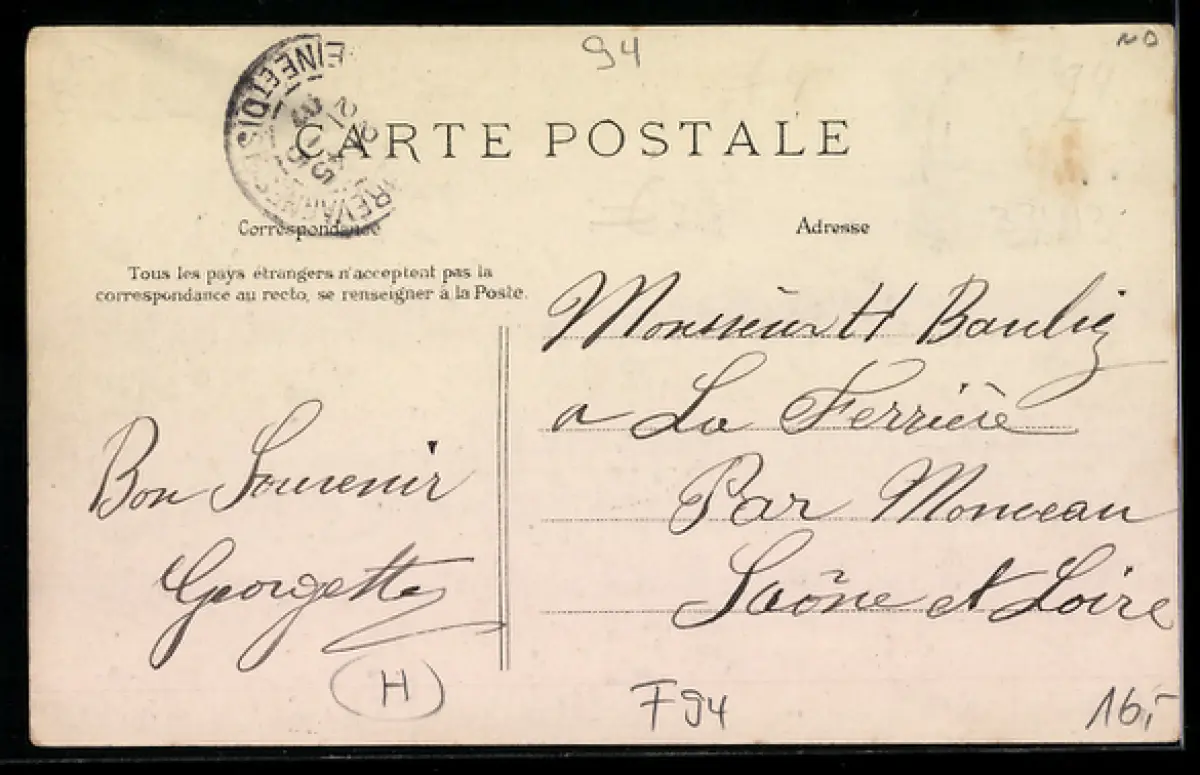 94
ND
EINE ET OISE
CARTE POSTALE
Correspondance
Adresse
Tous les pays étrangers n'acceptent pas la
correspondance au recto, se renseigner à la Poste.
Monsieur H Baulig
a La Ferrière
Par Monceau
Saône et Loire
Bon Souvenir
Georgette
H
F94
16,-